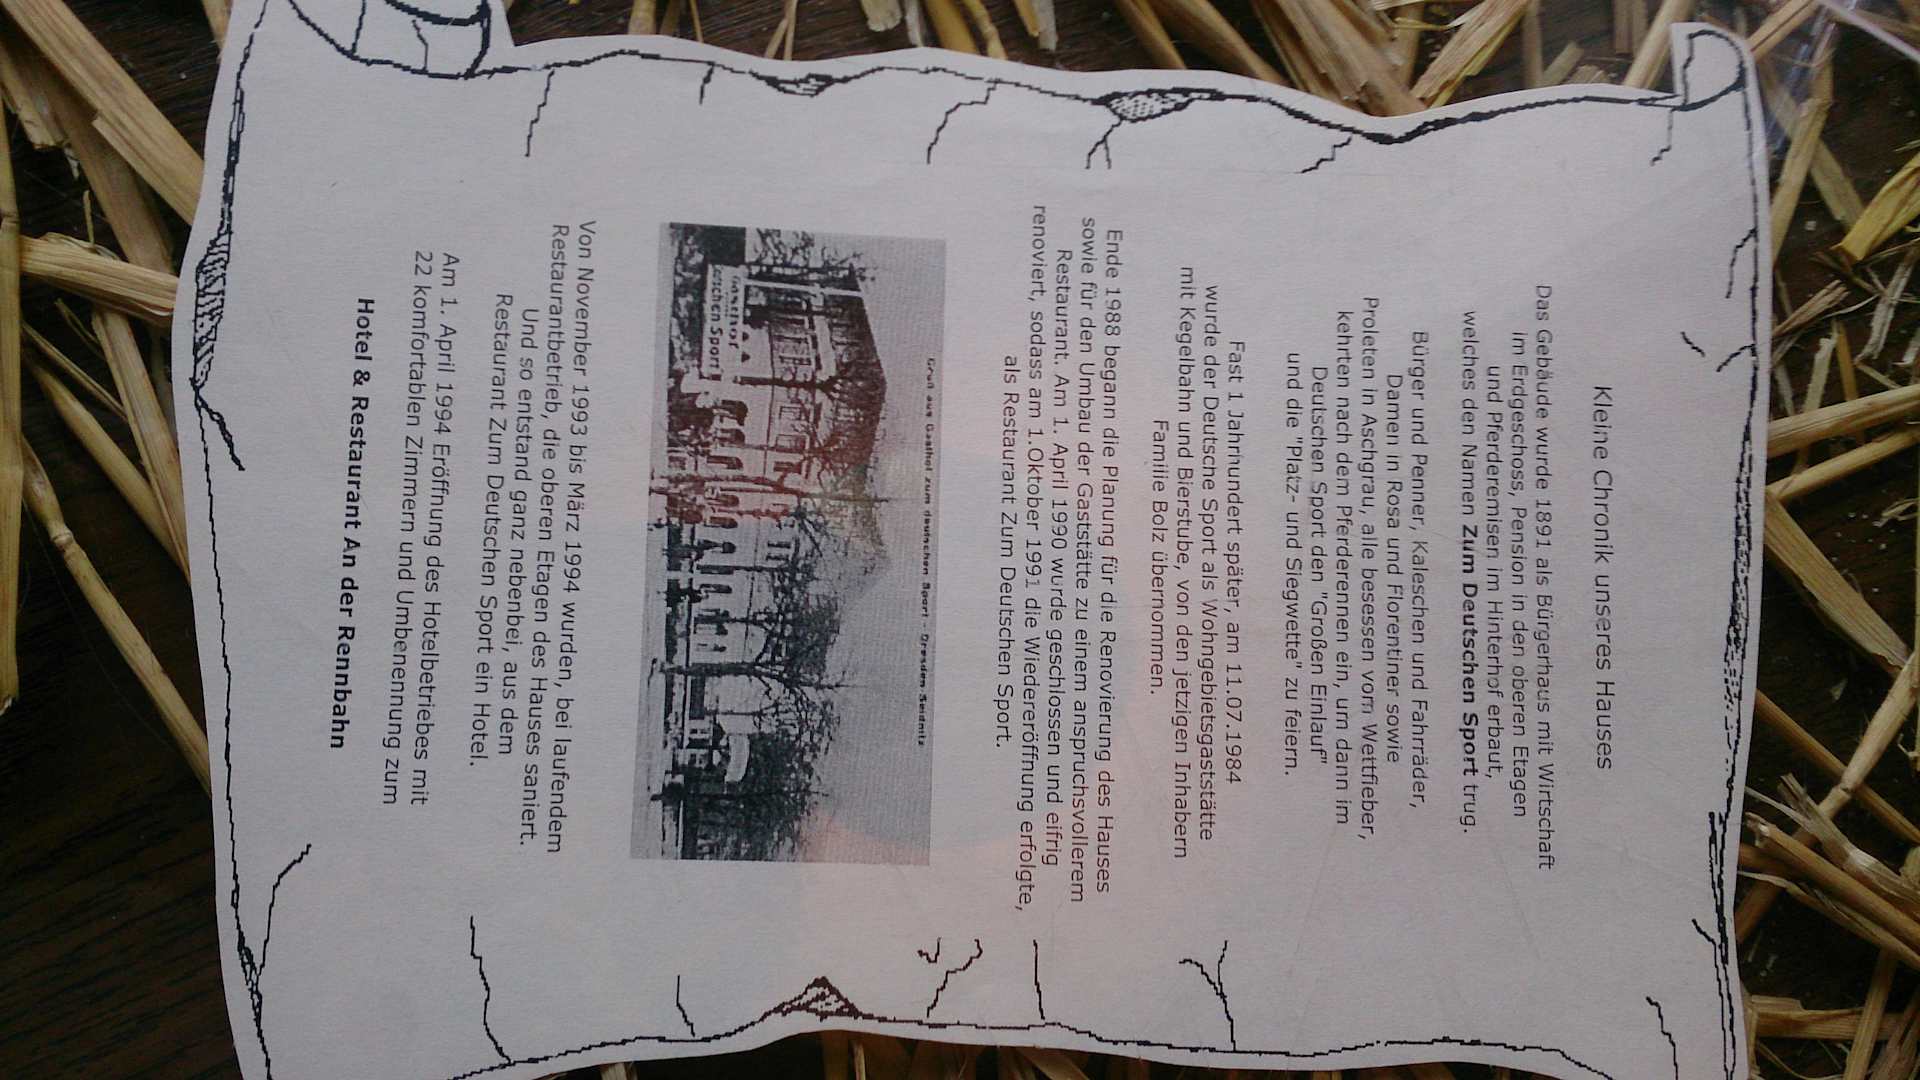 Kleine Chronik unseres Hauses
Das Gebäude wurde 1891 als Bürgerhaus mit Wirtschaft
im Erdgeschoss, Pension in den oberen Etagen
und Pferderemisen im Hinterhof erbaut,
welches den Namen Zum Deutschen Sport trug.
Bürger und Penner, Kaleschen und Fahrräder,
Damen in Rosa und Florentiner sowie
Proleten in Aschgrau, alle besessen vom Wettfieber,
kehrten nach dem Pferderennen ein, um dann im
Deutschen Sport den "Großen Einlauf"
und die "Platz- und Siegwette" zu feiern.
Fast 1 Jahrhundert später, am 11.07.1984
wurde der Deutsche Sport als Wohngebietsgaststätte
mit Kegelbahn und Bierstube, von den jetzigen Inhabern
Familie Bolz übernommen.
Ende 1988 begann die Planung für die Renovierung des Hauses
sowie für den Umbau der Gaststätte zu einem anspruchsvollerem
Restaurant. Am 1. April 1990 wurde geschlossen und eifrig
renoviert, sodass am 1.Oktober 1991 die Wiedereröffnung erfolgte,
als Restaurant Zum Deutschen Sport.
Gruß aus Gasthof zum deutschen Sport - Dresden-Seidnitz
Gasthof
tschen Sport
Von November 1993 bis März 1994 wurden, bei laufendem
Restaurantbetrieb, die oberen Etagen des Hauses saniert.
Und so entstand ganz nebenbei, aus dem
Restaurant Zum Deutschen Sport ein Hotel.
Am 1. April 1994 Eröffnung des Hotelbetriebes mit
22 komfortablen Zimmern und Umbenennung zum
Hotel & Restaurant An der Rennbahn